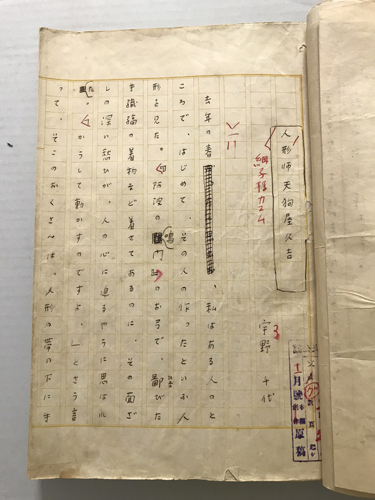 人形師天狗屋久吉
宇野千代
去年の春、私はある人のと
ころで、はじめて、その人の作つたといふ人
形を見た。阿波の鳴門のお弓で、鄙びた
手織縞の着物など着せてあるのに、その面ざ
しの深い愁ひが、人の心に迫るやうに思はれ
た。「かうして動かすのですよ。」とさう言
つて、そこのおくさんは、人形の帯の下に手
月號
原稿